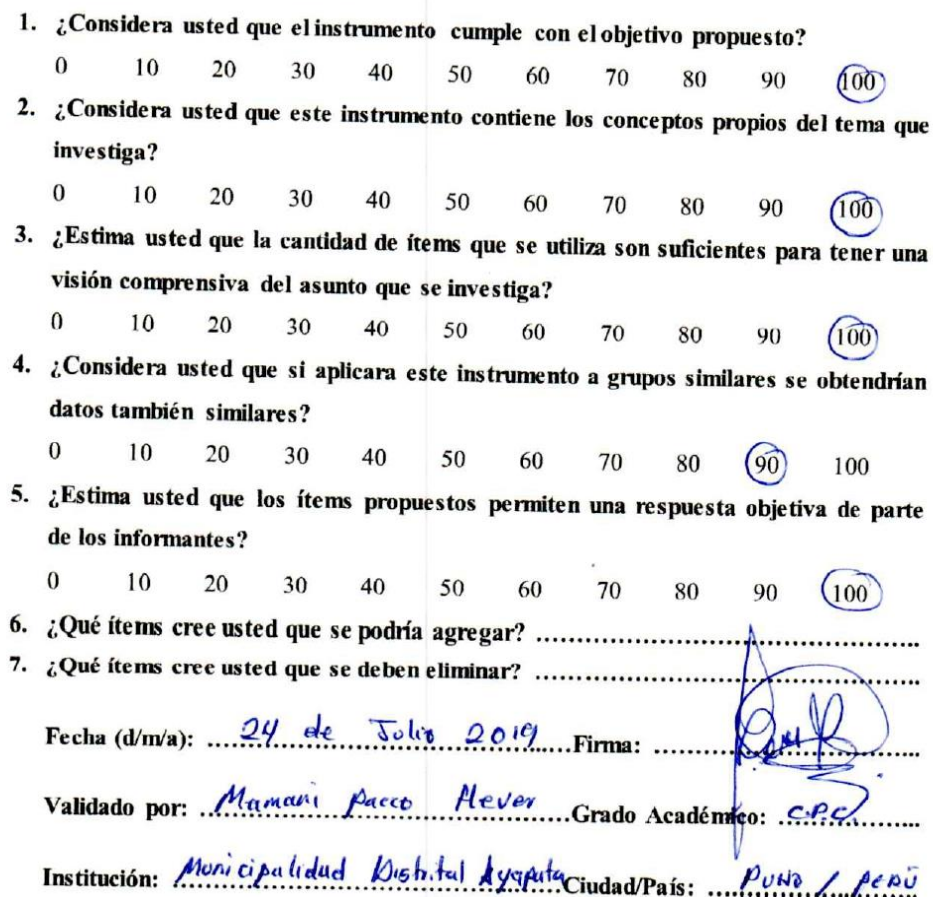 1. ¿Considera usted que el instrumento cumple con el objetivo propuesto?
0 10 20 30 40 50 60 70 80 90 100
2. ¿Considera usted que este instrumento contiene los conceptos propios del tema que
investiga?
0 10 20 30 40 50 60 70 80 90 100
3. ¿Estima usted que la cantidad de ítems que se utiliza son suficientes para tener una
visión comprensiva del asunto que se investiga?
0 10 20 30 40 50 60 70 80 90 100
4. ¿Considera usted que si aplicara este instrumento a grupos similares se obtendrían
datos también similares?
0 10 20 30 40 50 60 70 80 90 100
5. ¿Estima usted que los ítems propuestos permiten una respuesta objetiva de parte
de los informantes?
0 10 20 30 40 50 60 70 80 90 100
6. ¿Qué ítems cree usted que se podría agregar?
7. ¿Qué ítems cree usted que se deben eliminar?
Fecha (d/m/a): 24 de Julio 2019 Firma:
Validado por: Mamani Pacco Hever Grado Académico: C.P.C.
Institución: Municipalidad Distrital Ayapata Ciudad/País: PUNO / PERÚ